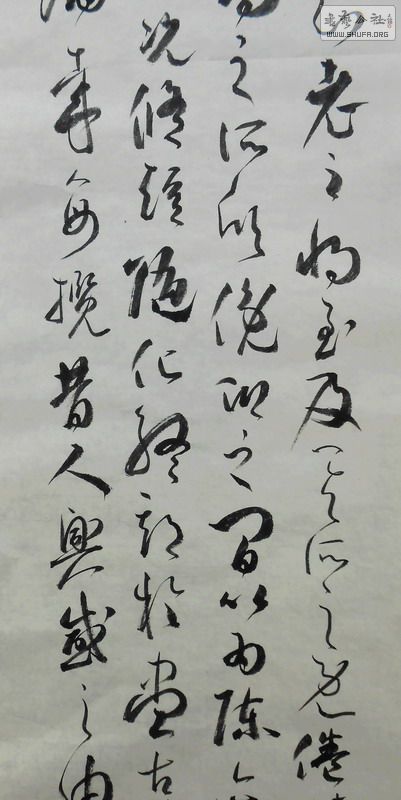 老之將至及其所之既倦
之所欣俛仰之間以為陳
況脩短隨化終期於盡古
哉每攬昔人興感之由
WWW.SHUFA.ORG